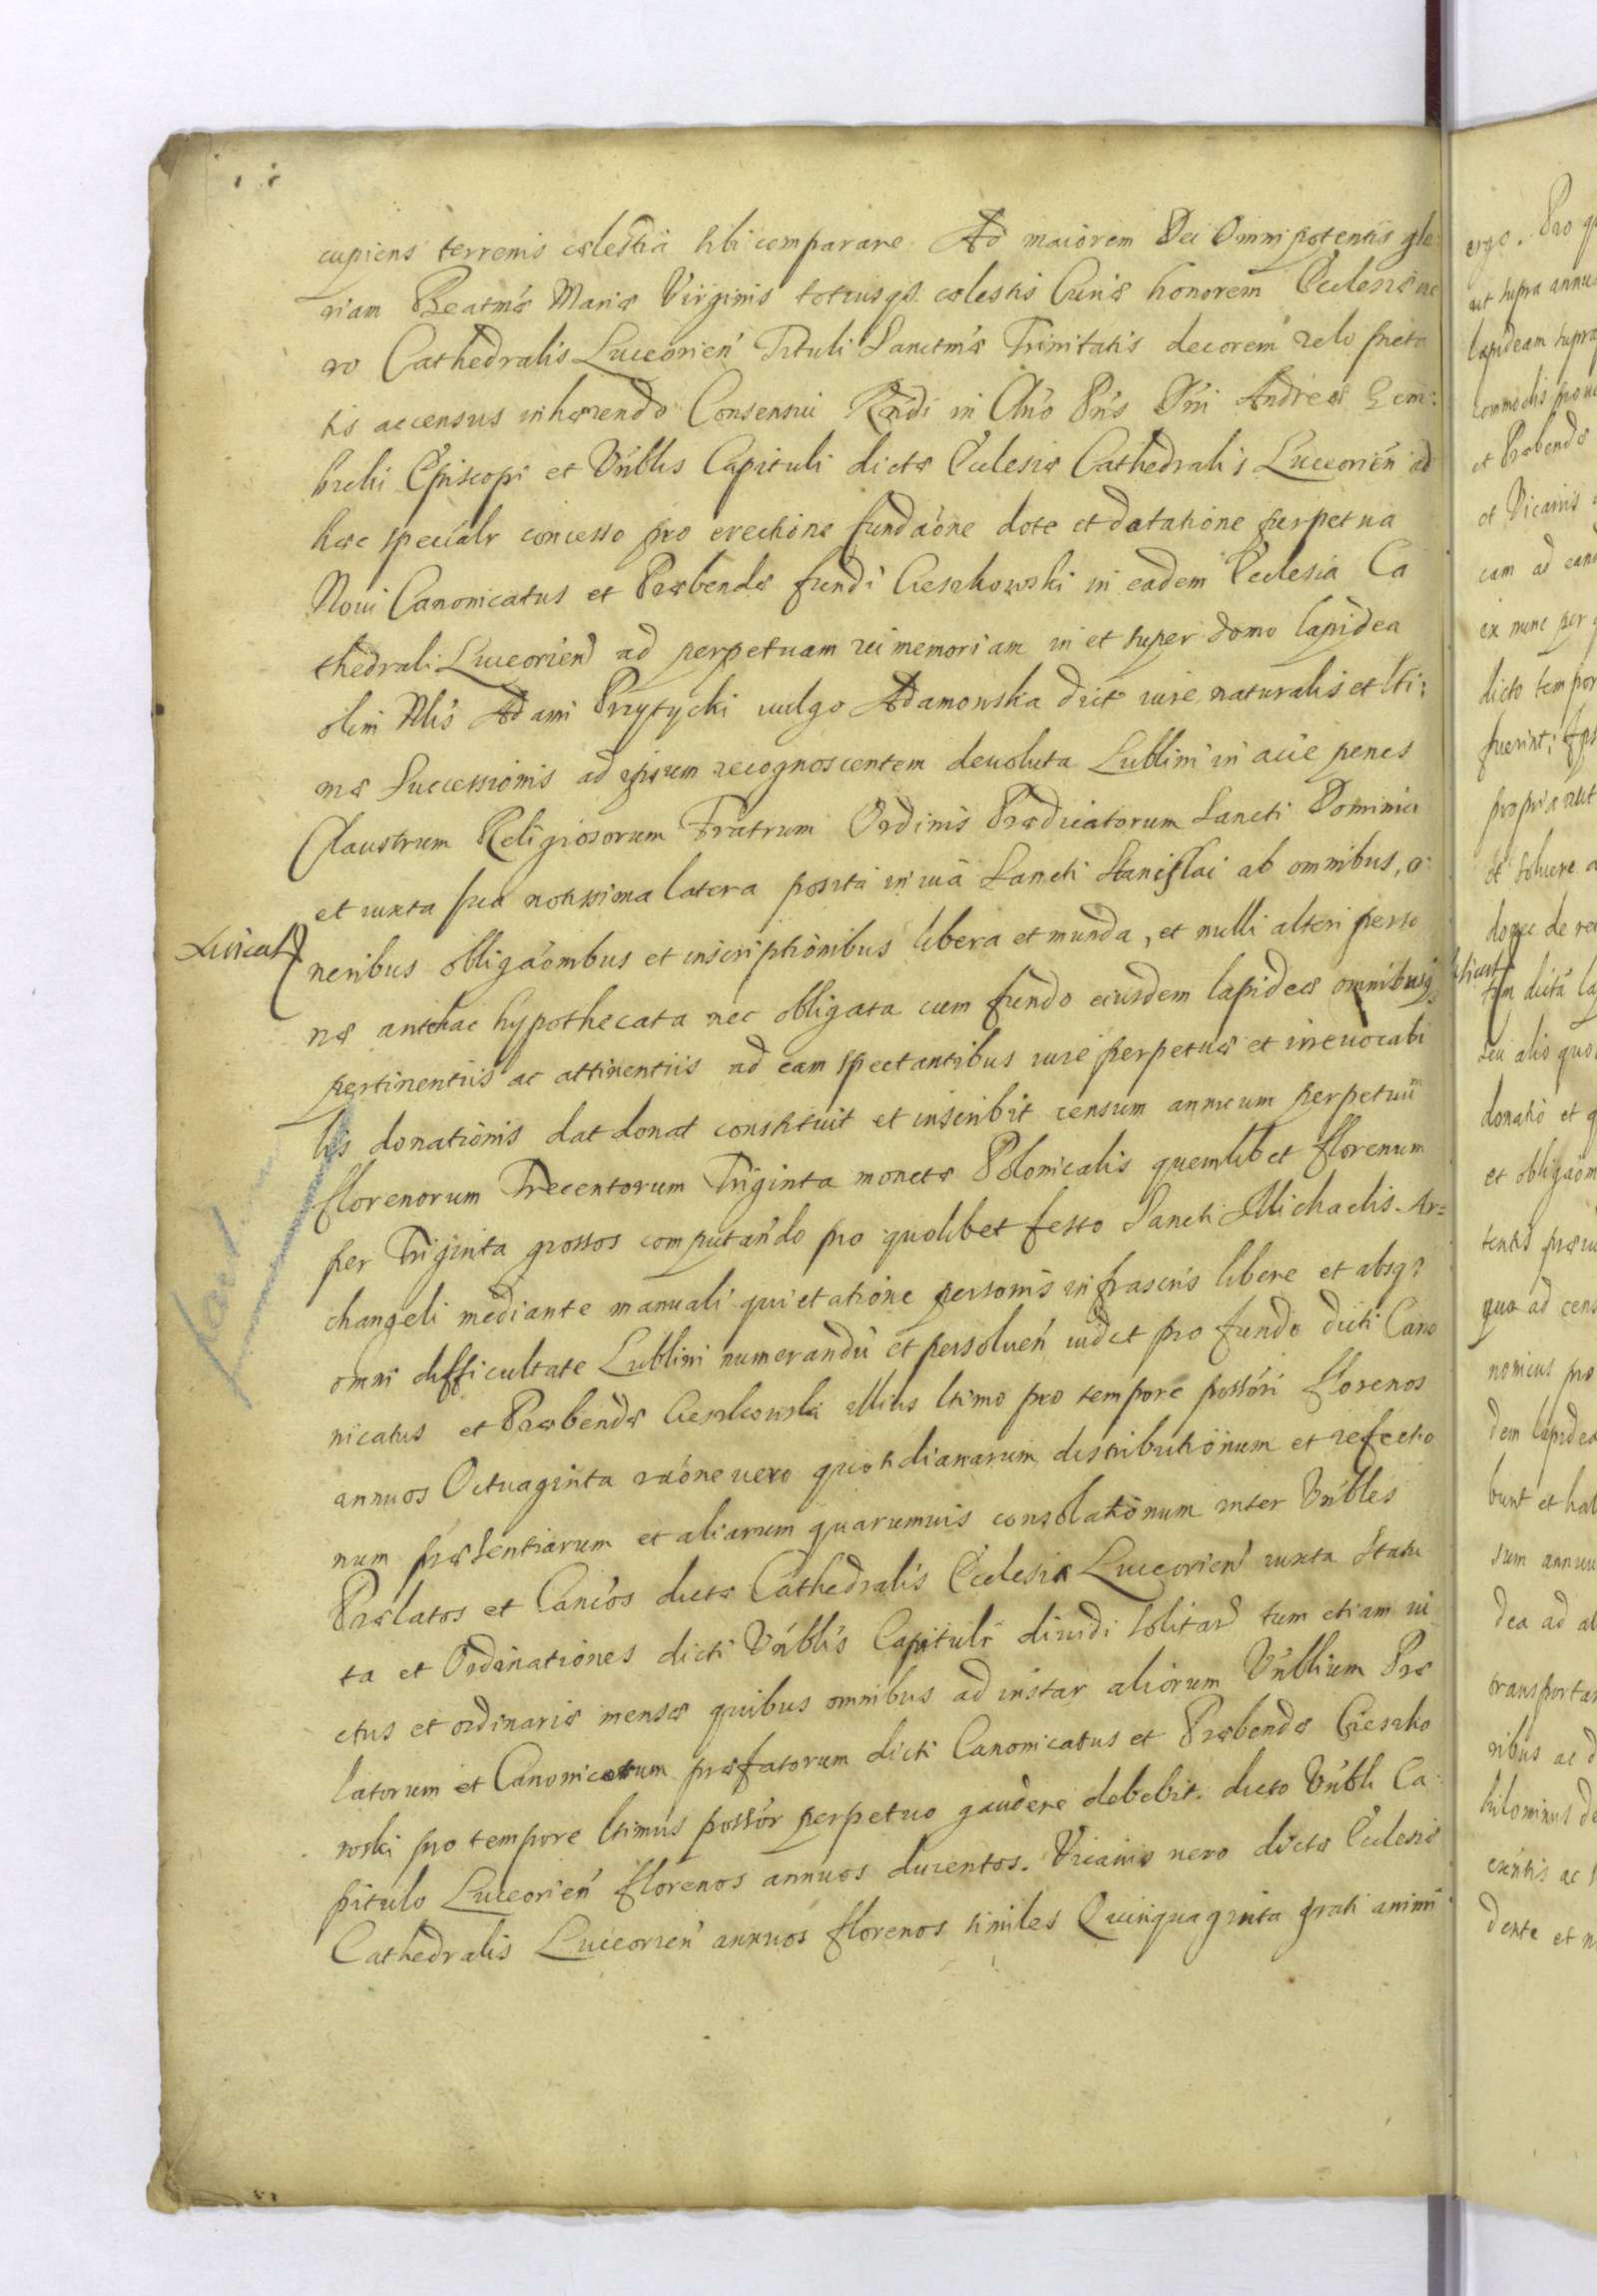 cupiens terrenis cælestia sibi comparare Ad maiorem Dei Omnipotentis glo
riam Beatmæ Mariæ Virginis totiusqz cælestis Curiæ honorem Ecclesiæ ue
ro Cathedralis Luceorien Tituli Sanctmæ Trinitatis decorem zelo pieta
tis accensus inhærendo Consensui Rndi in Chro Pris Dni Andreæ Gem:
bicki Episcopi et Vnblis Capituli dictæ Ecclesiæ Cathedralis Luceorien ad
hæc specialr concesso pro erectione fundaone dote et datatione perpetua
Noui Canonicatus et Præbendæ fundi Cieszkowski in eadem Ecclesia Ca
thedrali Luceorien ad perpetuam rei memoriam in et super domo lapidea
olim Nlis Adami Przytycki uulgo Adamowska dict iure naturalis et lti:
mæ Successionis ad ipsum recognoscentem deuoluta Lublini in acie penes
Claustrum Religiosorum Fratrum Ordinis Prædicatorum Sancti Dominici
et iuxta sua notissima latera posita in uia Sancti Stanislai ab omnibus, o
neribus obligaonibus et inscriptionibus libera et munda, et nulli alteri perso
næ antehac hypothecata nec obligata cum fundo eiusdem lapideæ omnibusq
pertinentiis ac attinentiis ad eam spectantibus iure perpetuæ et irreuocabi
lis donationis dat donat constituit et inscribit censum annuum perpetuum
florenorum Trecentorum Triginta monetæ Polonicalis quemlibet florenum
per Triginta grossos computando pro quolibet festo Sancti Michaelis Ar=
changeli mediante manuali quietatione personis infrascris libere et absqz
omni difficultate Lublini numerandu et persoluen uidet pro fundo dicti Cano
nicatus et Præbendæ Cieszkowski illius ltimo pro tempore possori florenos
annuos Octuaginta raone uero quotidianarum distributionum et refectio
num præsentiarum et aliarum quarumuis consolationum inter Vnbles
Prælatos et Canicos dictæ Cathedralis Ecclesiæ Luceorien iuxta Statu
ta et Ordinationes dicti Vnblis Capituli diuidi solitar tum etiam ui
ctus et ordinariæ mensæ quibus omnibus ad instar aliorum Vnblium Præ
latorum et Canonicorum præfatorum dicti Canonicatus et Præbendæ Cieszko
wski pro tempore ltimus possor perpetuo gaudere debebit. dicto Vnbli Ca
pitulo Luceorien florenos annuos ducentos. Vicariis uero dictæ Ecclesiæ
Cathedralis Luceorien annuos florenos similes Quinquaginta grati animi